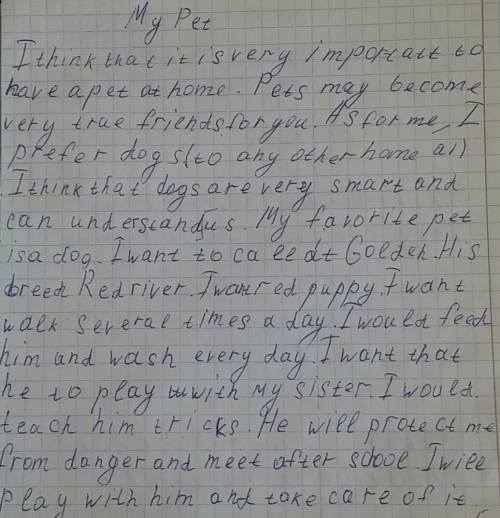 My Pet
I think that it is very importatt to
have a pet at home. Pets may become
very true friends for you. As for me, I
prefer dogs (to any other home al)
I think that dogs are very smart and
can understand us. My favorite pet
is a dog. I want to call it Golden. His
breed Redriver. I want red puppy. I want
walk several times a day. I would feed
him and wash every day. I want that
he to play with my sister. I would
teach him tricks. He will protect me
from danger and meet after school. I will
play with him and take care of it.